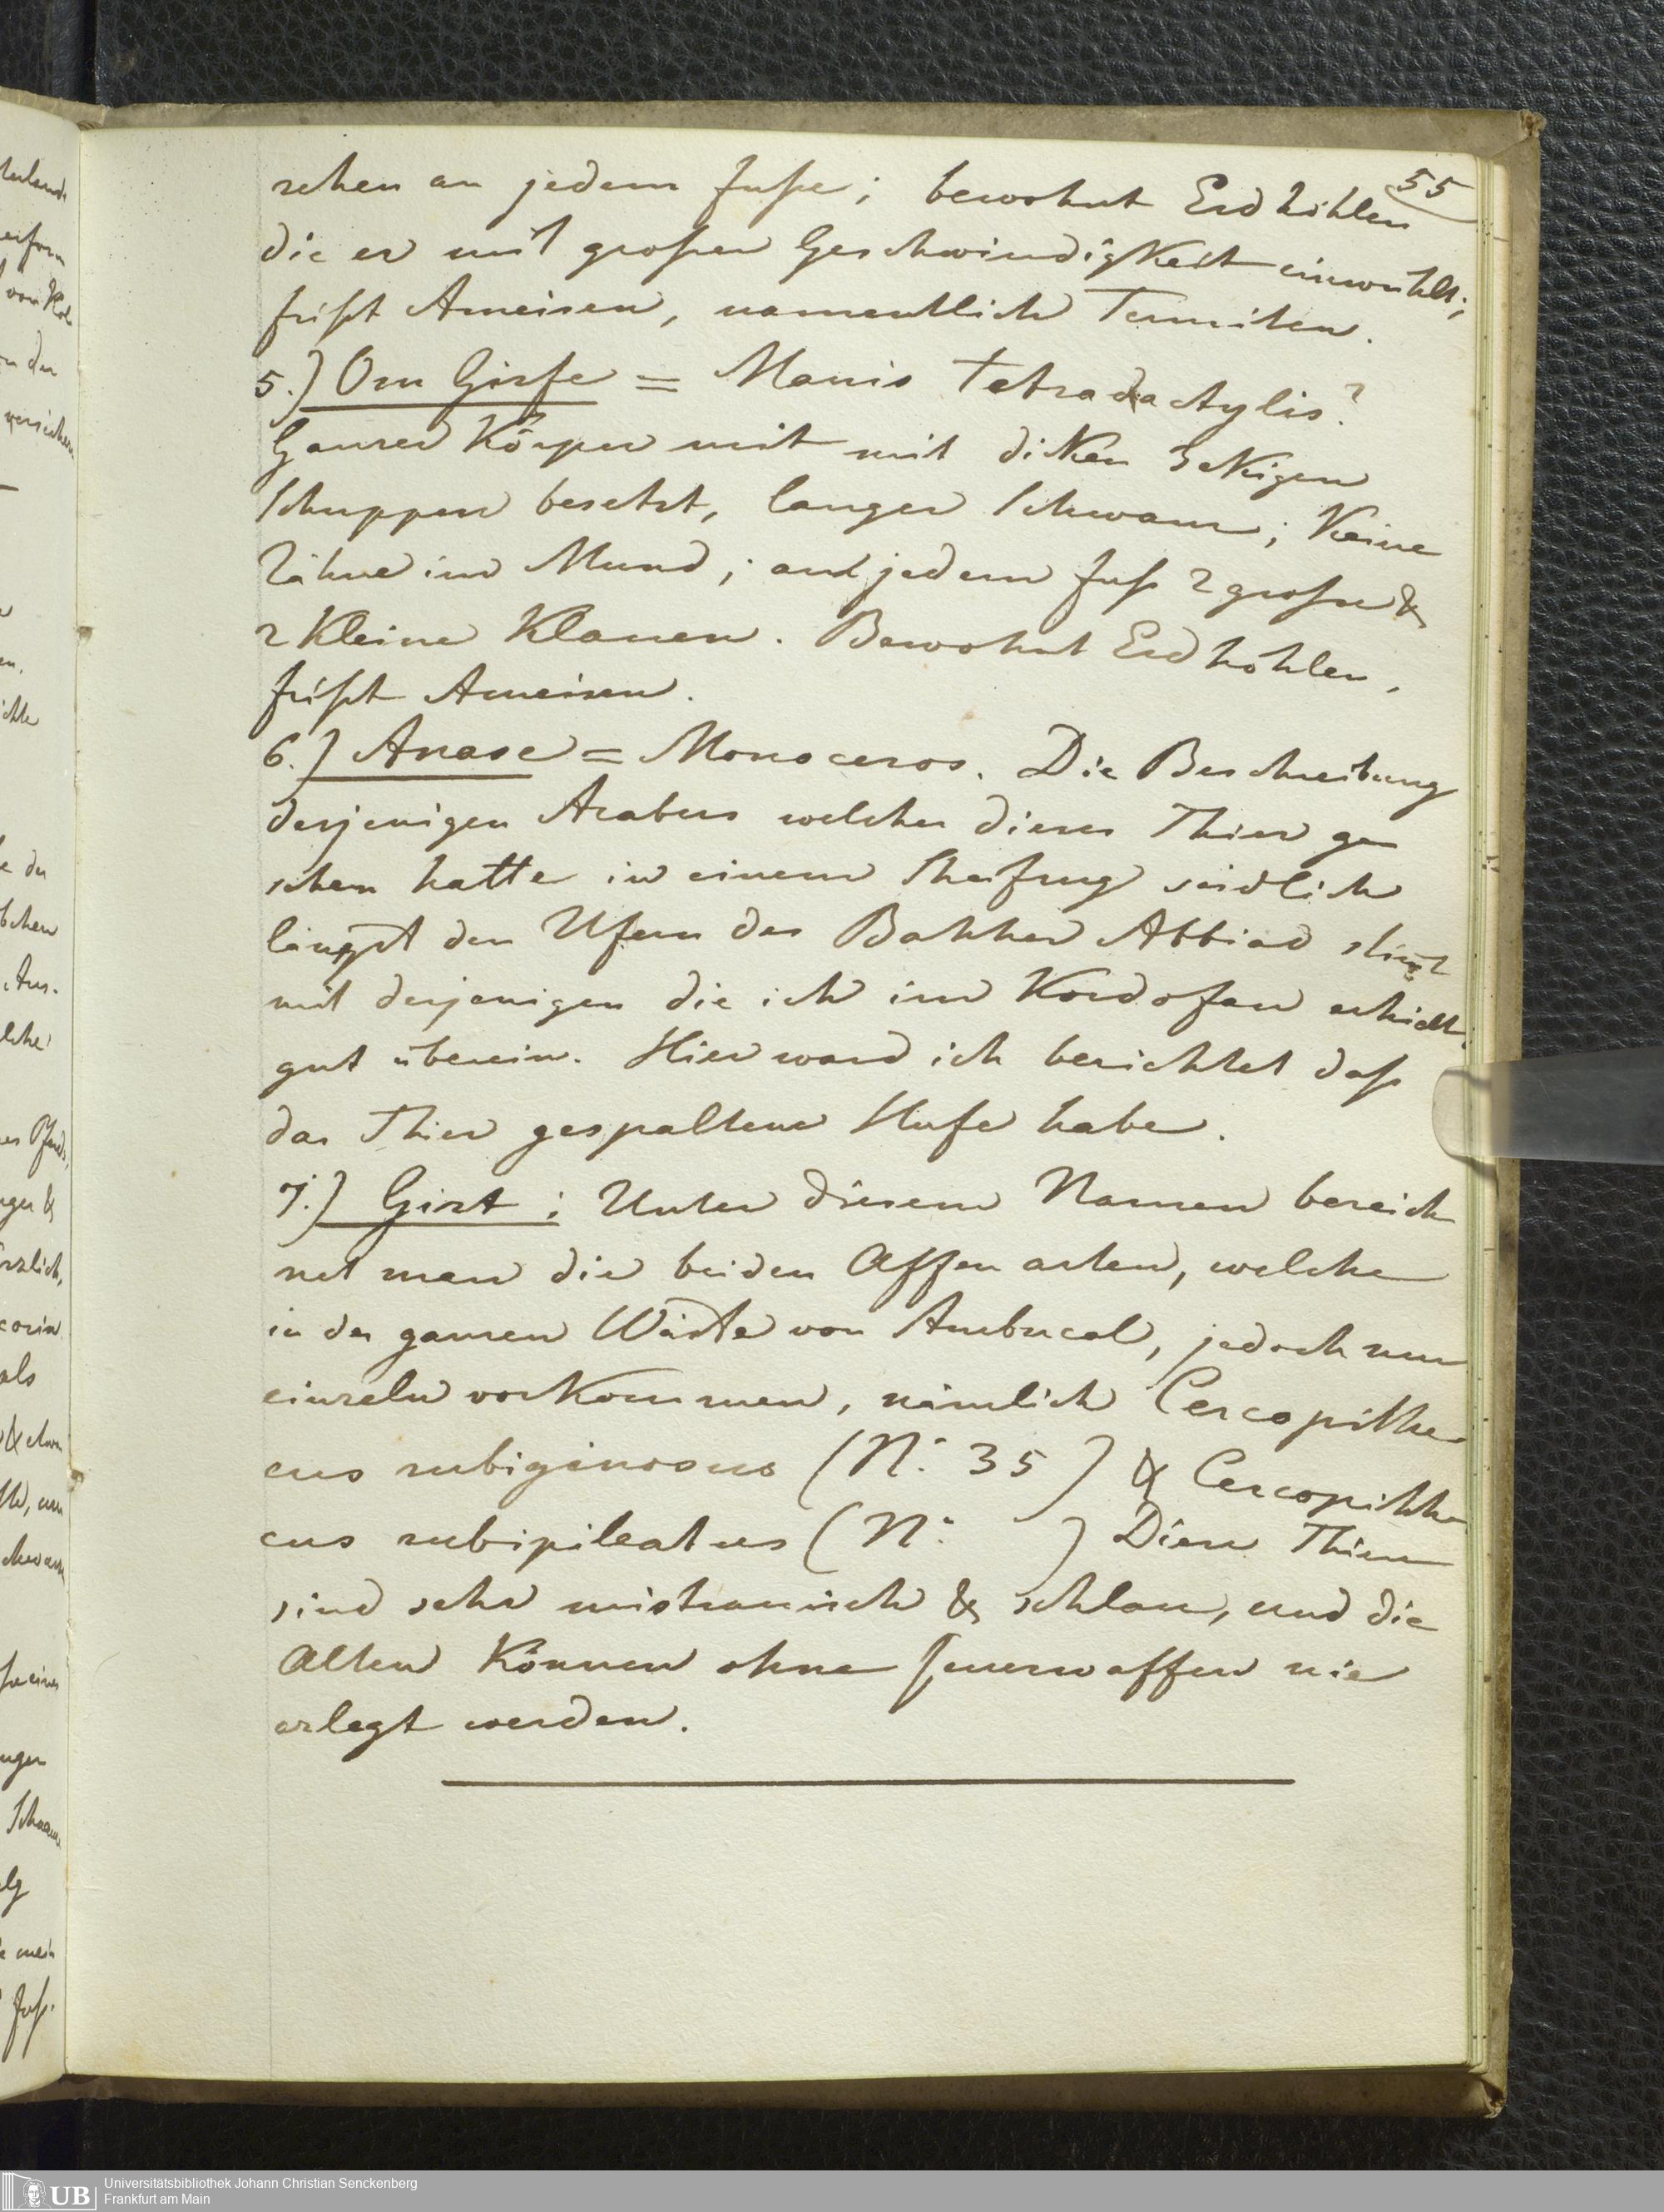 55
zehen an jedem Fuße; bewohnt Erdhöhlen
die er mit großer Geschwindigkeit einwühlt;
frißt Ameisen, namentlich Termiten.
5.) Om Girfe = Manis Tetradactylis?
Ganzer Körper mit mit diken 3ekigen
Schuppen besetzt, langer Schwanz; Keine
Zähne im Mund; an jedem Fuß 2 große &
2 Kleine Klauen. Bewohnt Erdhöhlen,
frißt Ameisen.
6.) Anase = Monoceros. Die Beschreibung
desjenigen Arabers welcher dieses Thier ge
sehen hatte in einem Streifzug südlich
längst den Ufern des Bahher Abbiad stimt
mit derjenigen die ich im Kordofan erhielt
gut überein. Hier ward ich berichtet daß
das Thier gespaltene Hufe habe.
7.) Girt; Unter diesem Namen bezeich
net man die beiden Affenarten, welche
in der ganzen Wüste von Ambucol, jedoch nur
einzeln vorkommen, nämlich Cercopithe
cus rubiginosus (N: 35) & Cercopithe
cus rubipileatus (N: ) Diese Thiere
sind sehr mistrauisch & schlau, und die
Alten Können ohne Feuerwaffen nie
erlegt werden.
UB Universitätsbibliothek Johann Christian Senckenberg
Frankfurt am Main